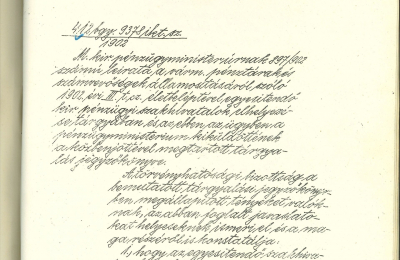 4. f. 2. bgy. 9372 ikt. sz.
1902
M. kir. pénzügyminister úrnak 897/902
számú leirata a várm. pénztárak és
számvevőségek államosításáról szóló
1902. évi III. t. cz. életbeléptetésével egyesítendő
kir. pénzügyi szakhivatalok elhelyezé-
se tárgyában, és az ebben az ügyben a
pénzügyministerium kiküldöttének
a közbenjöttével megtartott tárgya-
lás jegyzőkönyve.
A törvényhatósági bizottság a
bemutatott tárgyalási jegyzőköny-
ben megállapított tényeket valók-
nak, az abban foglalt javaslato-
kat helyeseknek ismeri el, és a ma-
ga részéről is konstatálja
1., hogy az egyesítendő szakhiva-